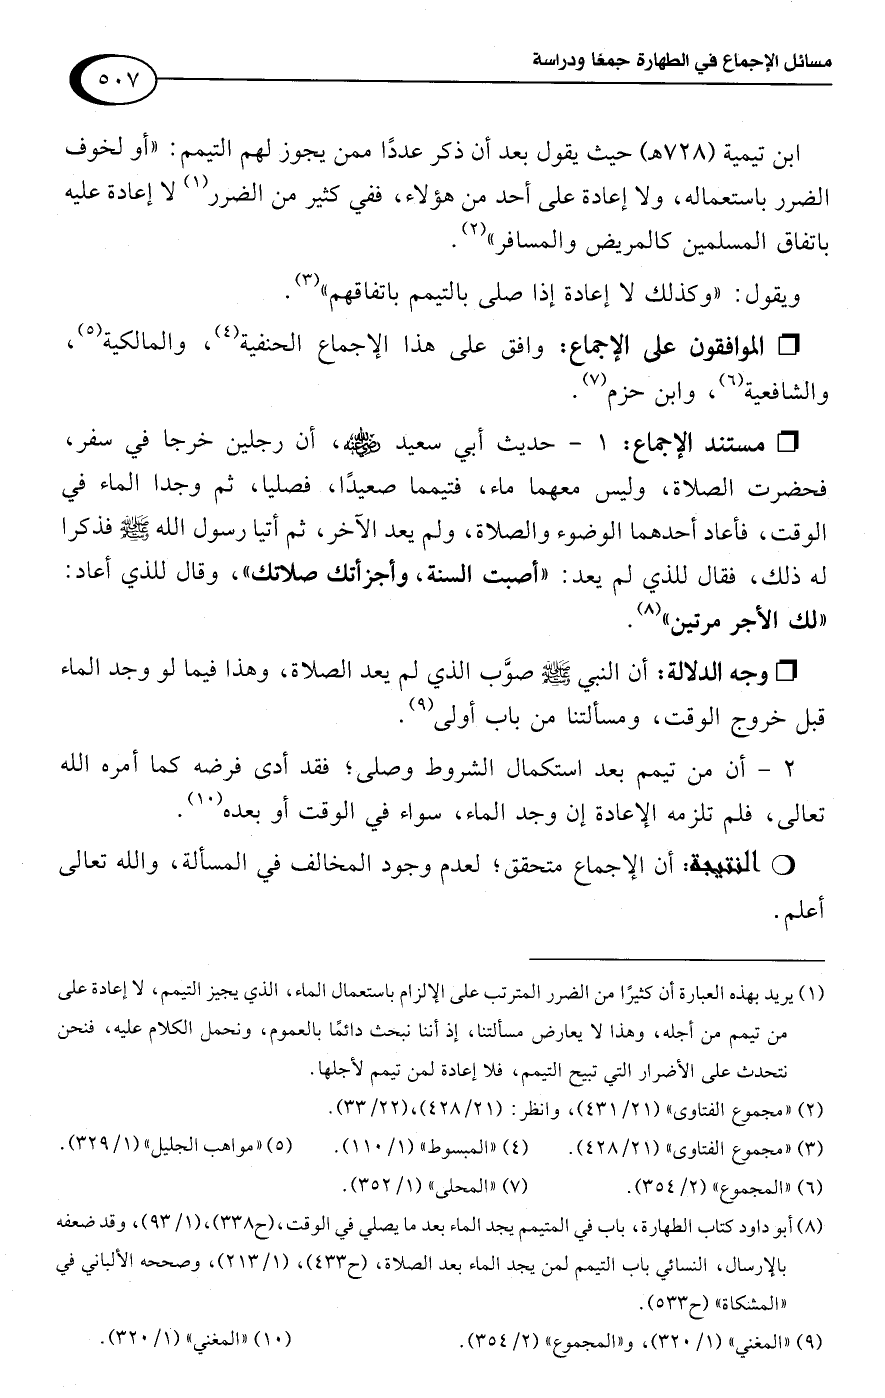 مسائل الإجماع في الطهارة جمعًا ودراسة
٥٠٧
ابن تيمية (٧٢٨هـ) حيث يقول بعد أن ذكر عددًا ممن يجوز لهم التيمم: «أو لخوف
الضرر باستعماله، ولا إعادة على أحد من هؤلاء، ففي كثير من الضرر(١) لا إعادة عليه
باتفاق المسلمين كالمريض والمسافر»(٢).
ويقول: «وكذلك لا إعادة إذا صلى بالتيمم باتفاقهم»(٣).
❒ الموافقون على الإجماع: وافق على هذا الإجماع الحنفية(٤)، والمالكية(٥)،
والشافعية(٦)، وابن حزم(٧).
❒ مستند الإجماع: ١ - حديث أبي سعيد رضي الله عنه، أن رجلين خرجا في سفر،
فحضرت الصلاة، وليس معهما ماء، فتيمما صعيدًا، فصليا، ثم وجدا الماء في
الوقت، فأعاد أحدهما الوضوء والصلاة، ولم يعد الآخر، ثم أتيا رسول الله ﷺ فذكرا
له ذلك، فقال للذي لم يعد: «أصبت السنة، وأجزأتك صلاتك»، وقال للذي أعاد:
«لك الأجر مرتين»(٨).
❒ وجه الدلالة: أن النبي ﷺ صوَّب الذي لم يعد الصلاة، وهذا فيما لو وجد الماء
قبل خروج الوقت، ومسألتنا من باب أولى(٩).
٢ - أن من تيمم بعد استكمال الشروط وصلى؛ فقد أدى فرضه كما أمره الله
تعالى، فلم تلزمه الإعادة إن وجد الماء، سواء في الوقت أو بعده(١٠).
❍ النتيجة: أن الإجماع متحقق؛ لعدم وجود المخالف في المسألة، والله تعالى
أعلم.
(١) يريد بهذه العبارة أن كثيرًا من الضرر المترتب على الإلزام باستعمال الماء، الذي يجيز التيمم، لا إعادة على
من تيمم من أجله، وهذا لا يعارض مسألتنا، إذ أننا نبحث دائمًا بالعموم، ونحمل الكلام عليه، فنحن
نتحدث على الأضرار التي تبيح التيمم، فلا إعادة لمن تيمم لأجلها.
(٢) «مجموع الفتاوى» (٢١/ ٤٣١)، وانظر: (٢١/ ٤٢٨)،(٢٢/ ٣٣).
(٣) «مجموع الفتاوى» (٢١/ ٤٢٨). (٤) «المبسوط» (١/ ١١٠). (٥) «مواهب الجليل» (١/ ٣٢٩).
(٦) «المجموع» (٢/ ٣٥٤). (٧) «المحلى» (١/ ٣٥٢).
(٨) أبو داود كتاب الطهارة، باب في المتيمم يجد الماء بعد ما يصلي في الوقت، (ح٣٣٨)،(١/ ٩٣)، وقد ضعفه
بالإرسال، النسائي باب التيمم لمن يجد الماء بعد الصلاة، (ح٤٣٣)، (١/ ٢١٣)، وصححه الألباني في
«المشكاة» (ح٥٣٣).
(٩) «المغني» (١/ ٣٢٠)، و«المجموع» (٢/ ٣٥٤). (١٠) «المغني» (١/ ٣٢٠).